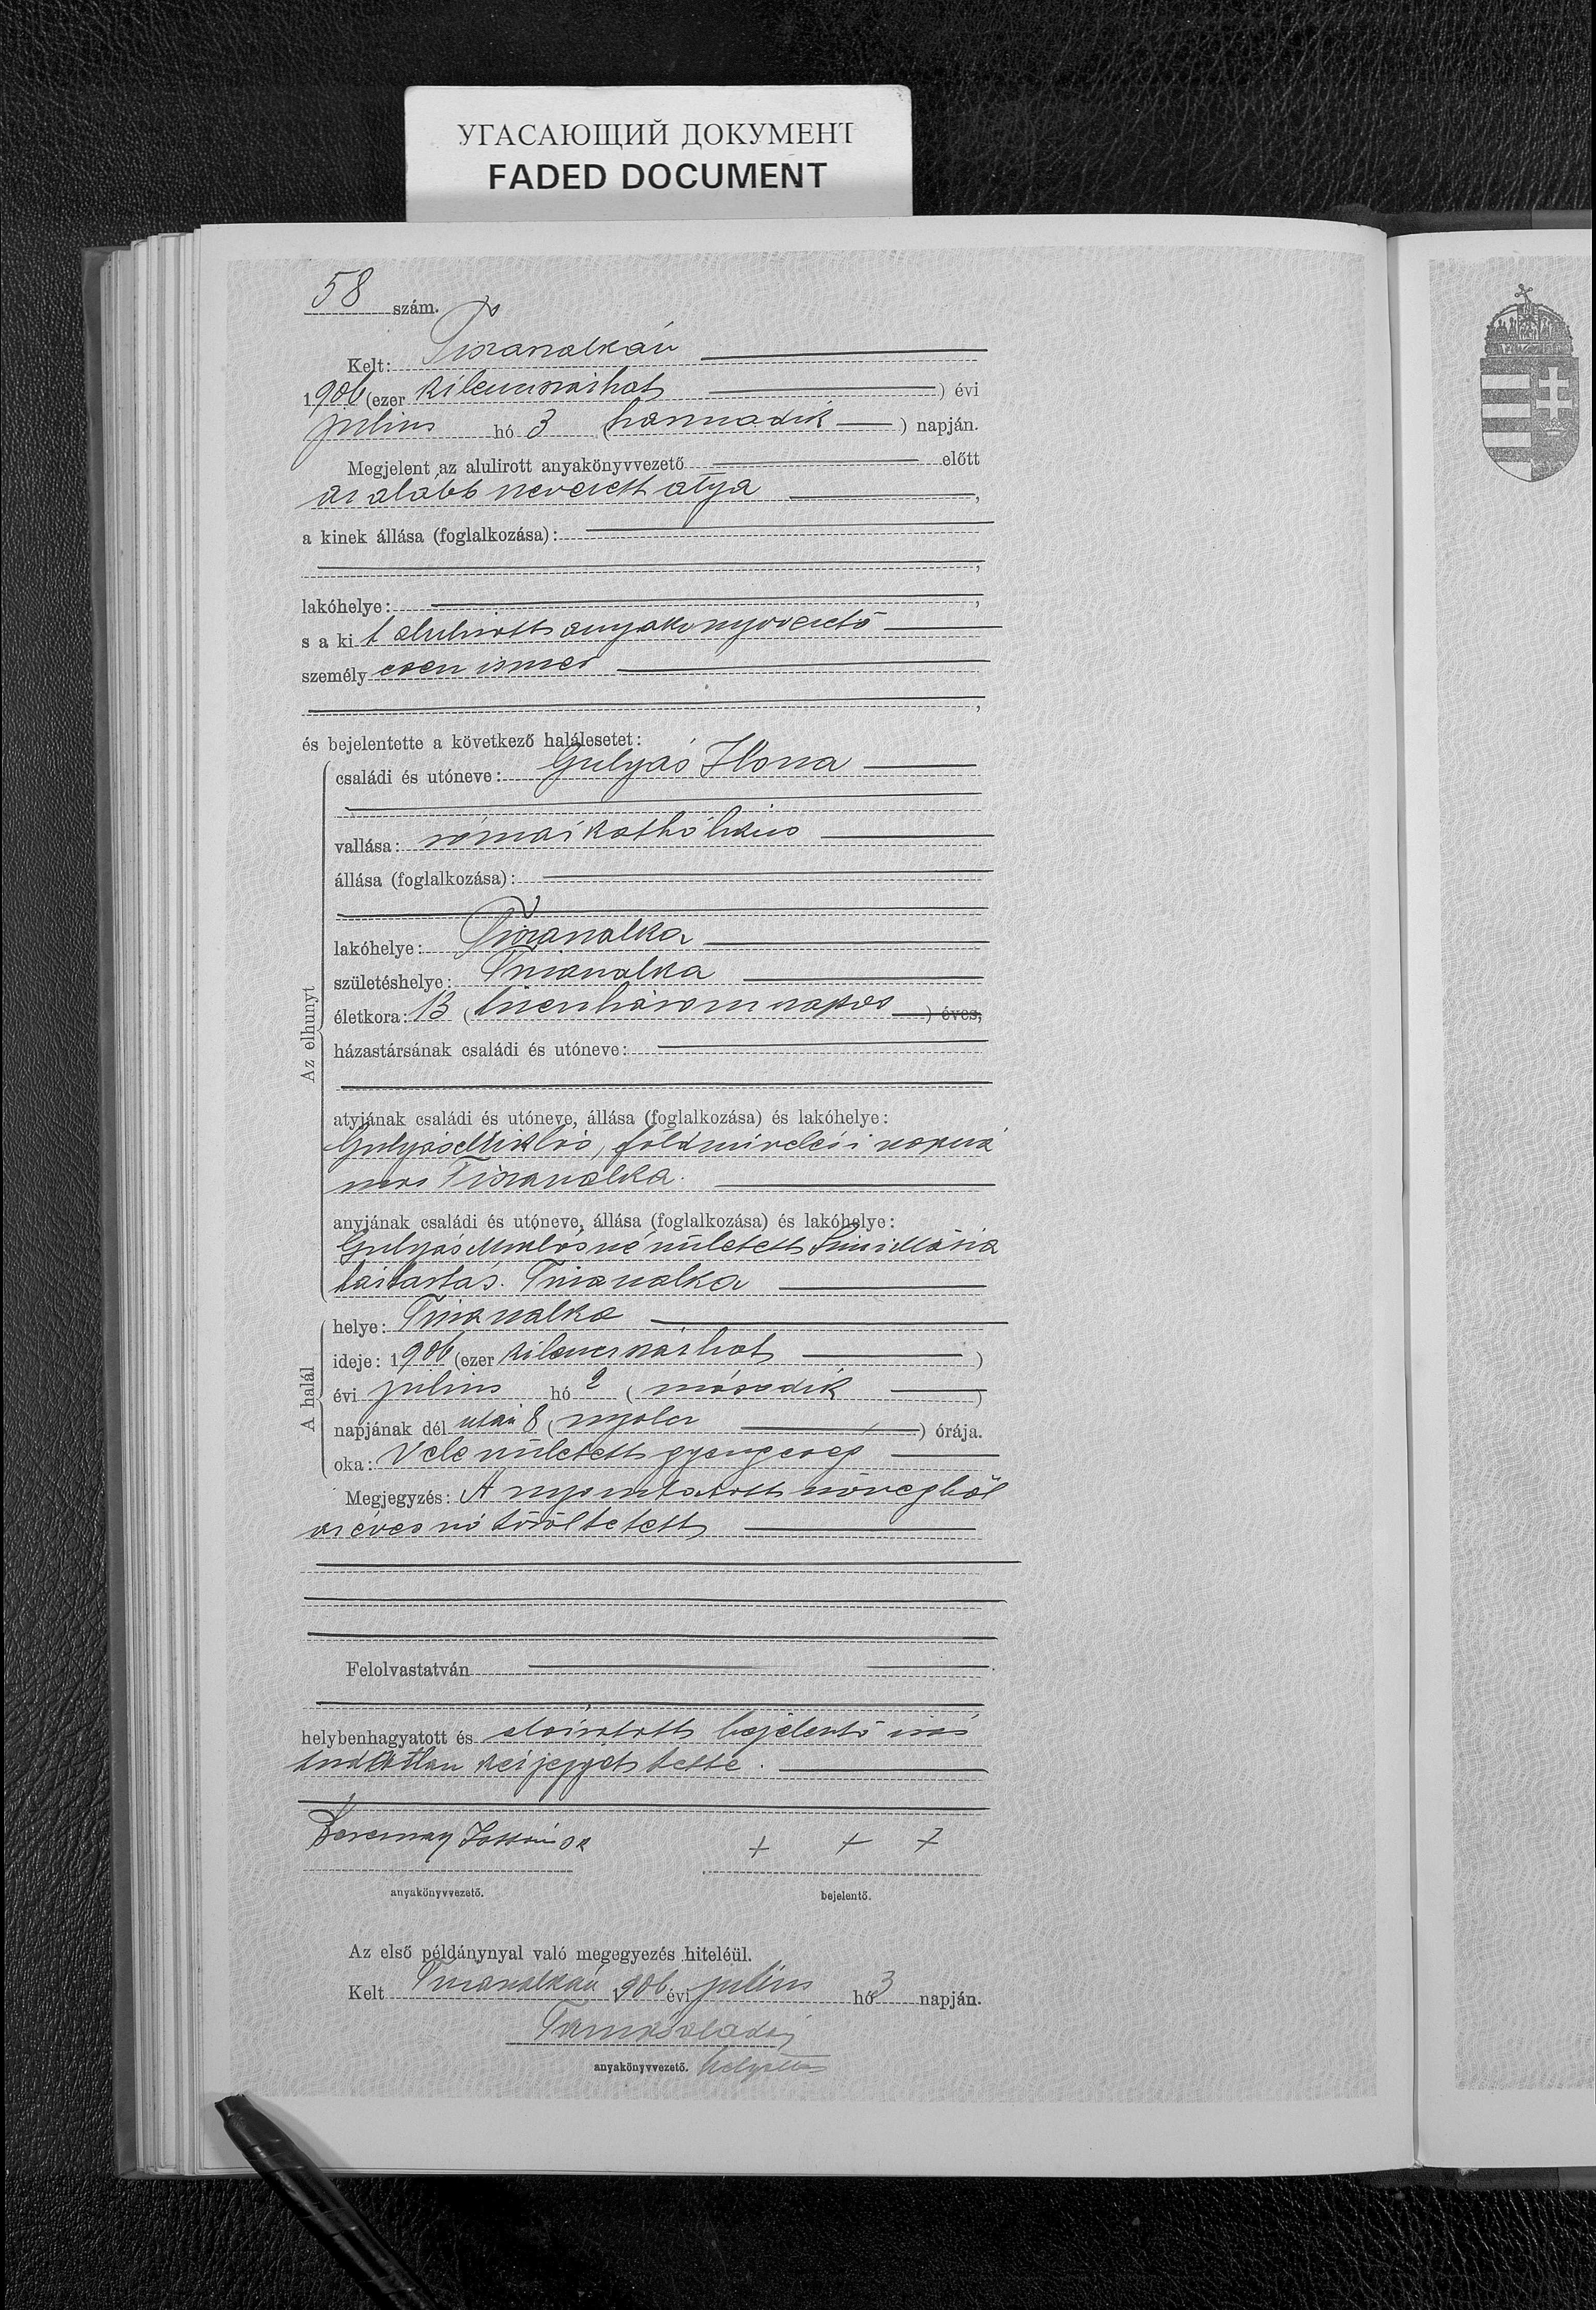 УГАСАЮЩИЙ ДОКУМЕНТ
FADED DOCUMENT
58 szám.
Kelt: Tiszasalkán
1906 (ezer kilenczszázhat ) évi
julius hó 3 (harmadik ) napján.
Megjelent az alulirott anyakönyvvezető előtt
az alább nevezett atya ,
a kinek állása (foglalkozása):
,
lakóhelye: ,
s a kit alulirott anyakönyvvezető
személyesen ismer
,
és bejelentette a következő halálesetet:
Az elhunyt
családi és utóneve: Gulyás Ilona
vallása: római katholikus
állása (foglalkozása):
lakóhelye: Tiszasalka
születéshelye: Tiszasalka
életkora: 13 (tizenhárom napos ) éves,
házastársának családi és utóneve:
atyjának családi és utóneve, állása (foglalkozása) és lakóhelye:
Gulyás Miklós, földmüvelési napszá
mos Tiszasalka.
anyjának családi és utóneve, állása (foglalkozása) és lakóhelye:
Gulyás Miklósné született Mária
háztartás. Tiszasalka
A halál
helye: Tiszasalka
ideje: 1906 (ezer kilenczszázhat )
évi julius hó 2 (második )
napjának dél után 8 (nyolcz ) órája.
oka: Vele született gyengeség
Megjegyzés: A nyomtatott szövegből
az éves szó töröltetett
Felolvastatván
helybenhagyatott és aláiratott bejelentő irás
tudatlan kézjegyét tette.
+ + +
anyakönyvvezető. bejelentő.
Az első példánynyal való megegyezés hiteléül.
Kelt Tiszasalkán 1906 évi julius hó 3 napján.
anyakönyvvezető. helyettes